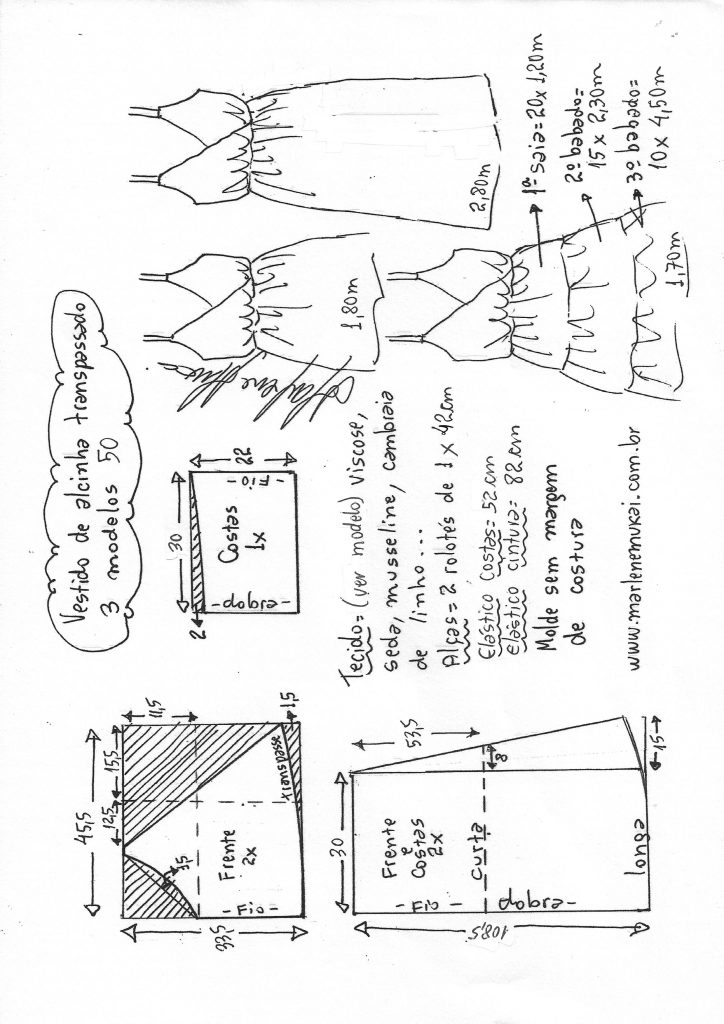 Vestido de alcinha transpassado
3 modelos 50
45,5
12,5
15,5
11,5
33,5
1,5
transpasse
Frente
2x
- Fio -
30
22
2
Costas
1x
- Fio -
- dobra -
30
53,5
8
15
108,5
Frente
e
Costas
2x
curta
longa
- Fio -
dobra -
Tecido= (ver modelo) viscose,
seda, musseline, cambraia
de linho...
Alças= 2 rolotés de 1 x 42cm
Elástico Costas= 52cm
Elástico cintura= 82cm
Molde sem margem
de costura
www.marlenemukai.com.br
1,80m
2,80m
1,70m
1ª saia= 20 x 1,20m
2º babado=
15 x 2,30m
3º babado=
10 x 4,50m